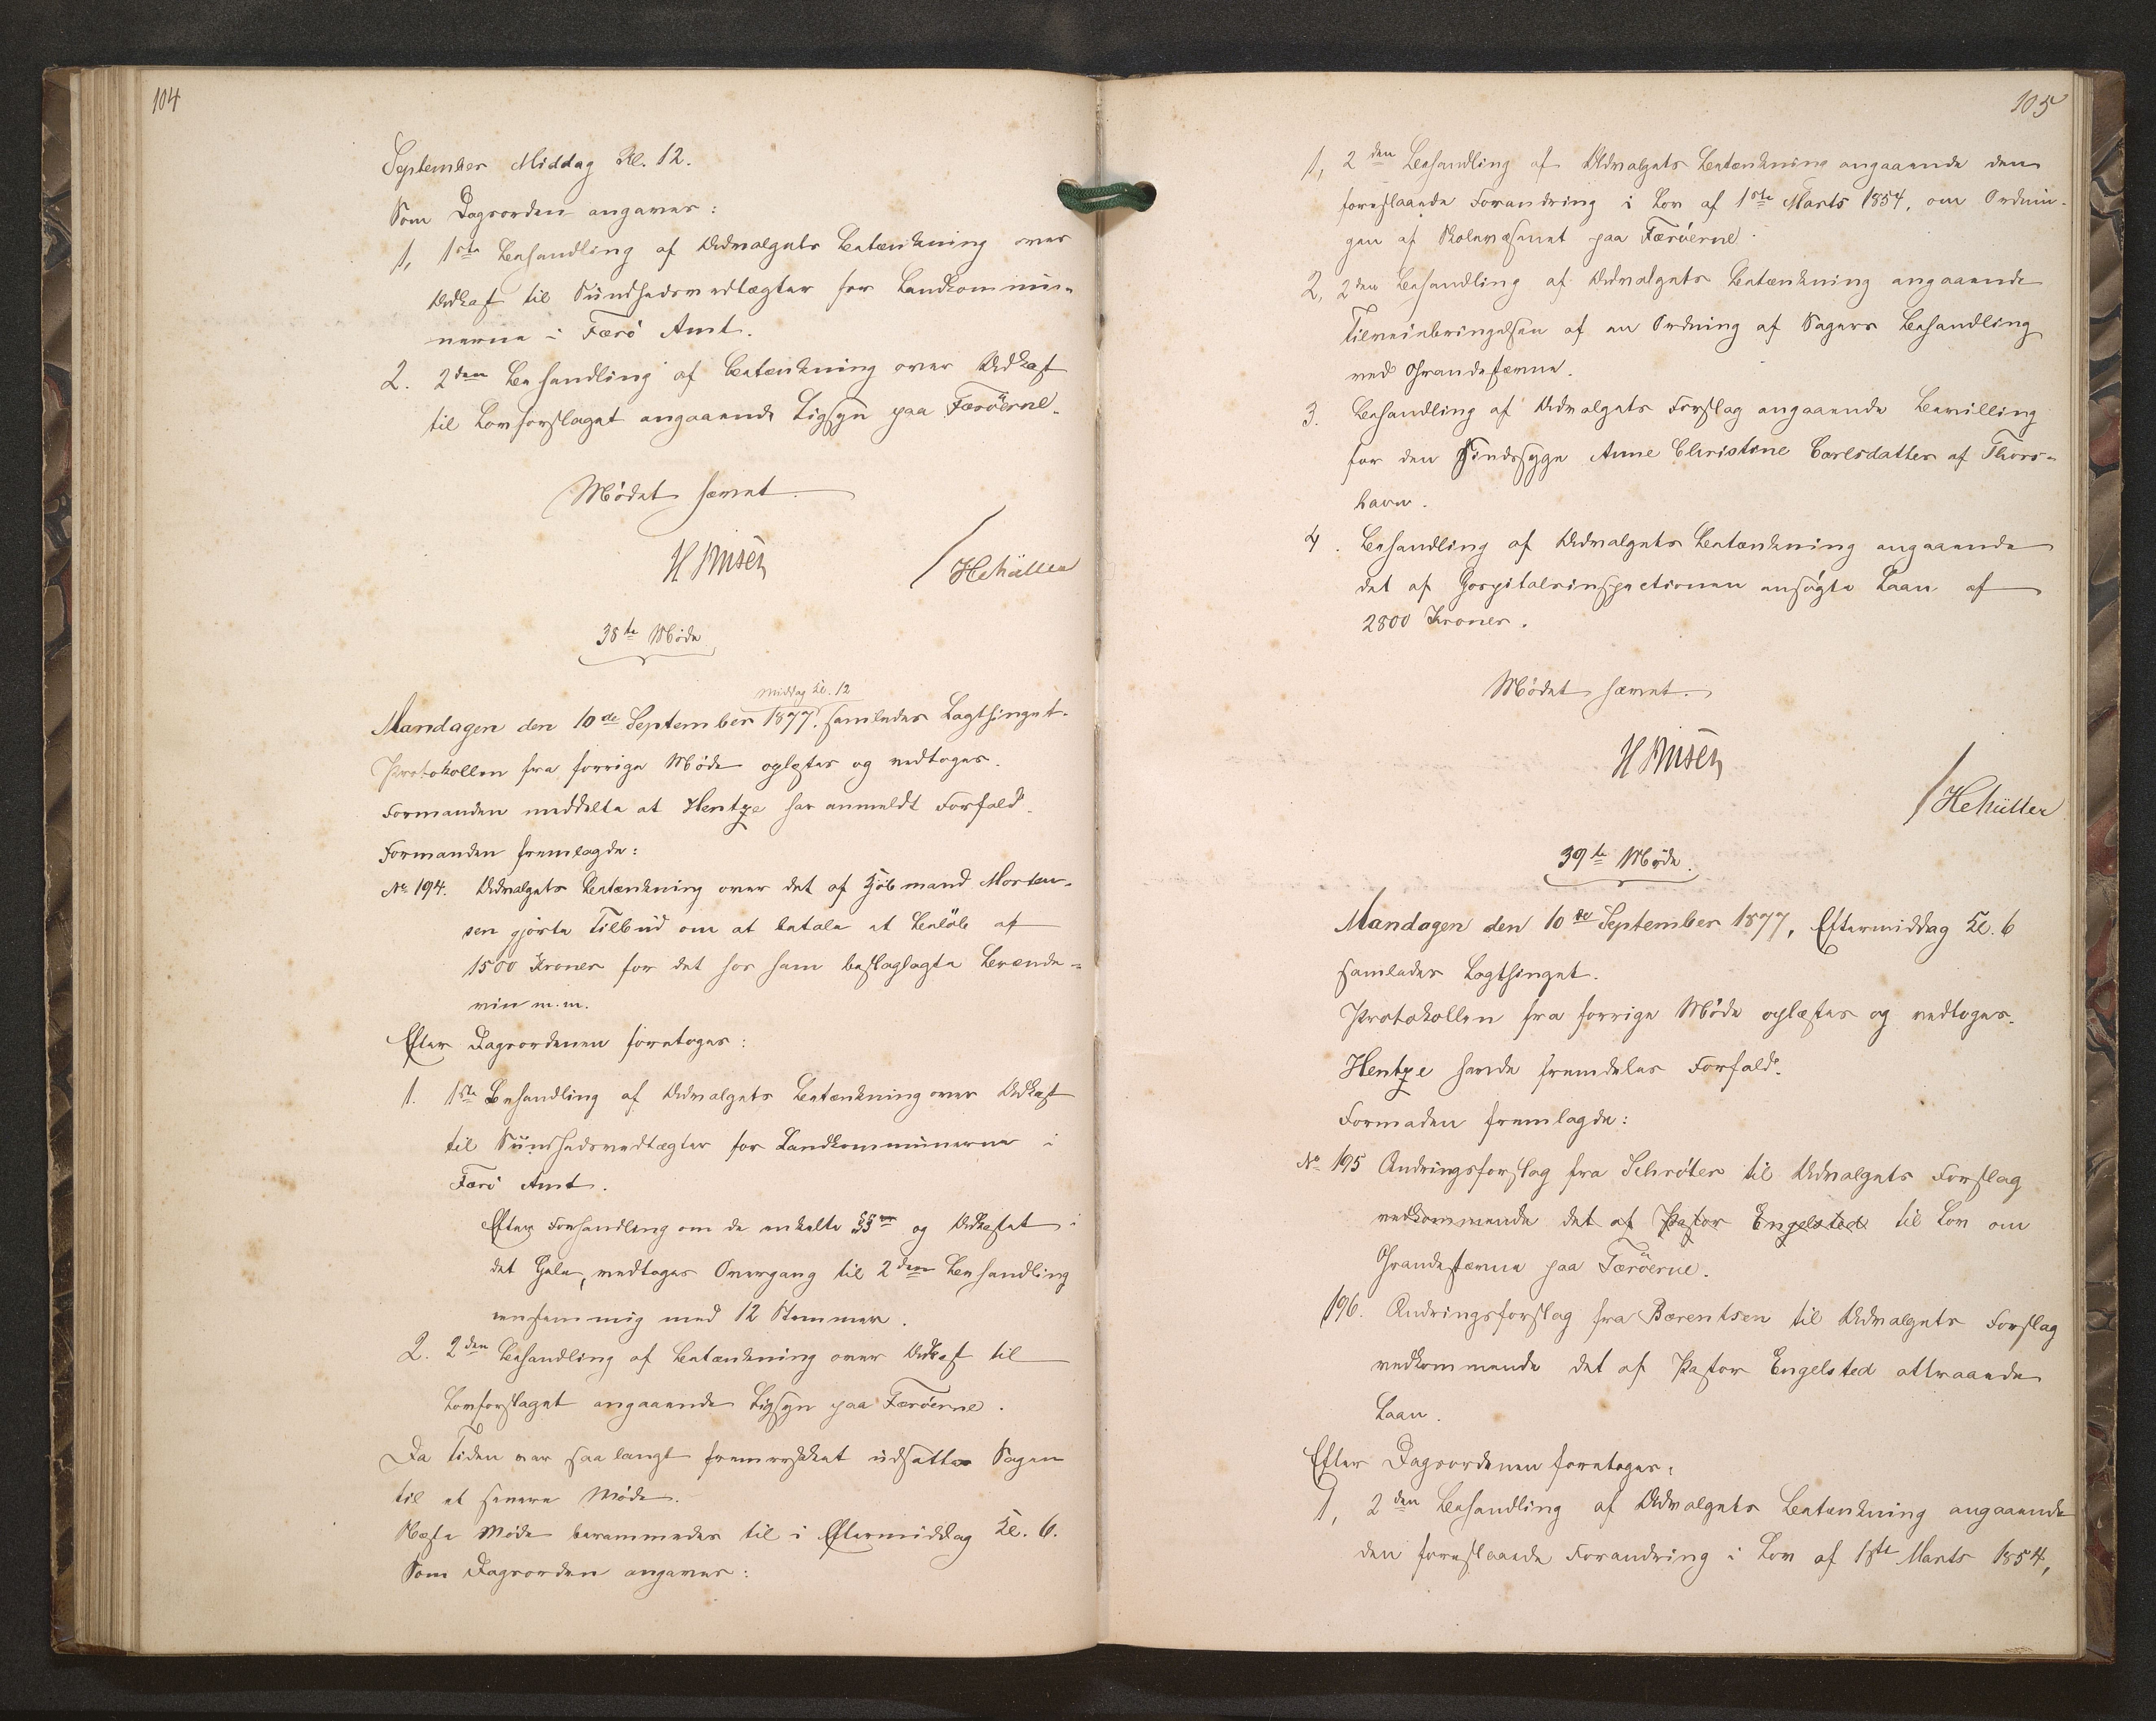 104
September Middag Kl. 12.
Som Dagsorden angaves:
1, 1ste Behandling af Udvalgets Betænkning over
Udkast til Sundhedsvedtægter for Landkommu-
nerne i Færö Amt.
2. 2den Behandling af Betænkning over Udkast
til Lovforslaget angaaende Ligsyn paa Færöerne.
Mödet hævet.
38te Möde
Middag Kl. 12
Mandagen den 10de September 1877. samledes Lagthinget.
Protokollen fra forrige Möde oplæstes og vedtoges.
Formanden meddelte at Hentze har anmeldt Forfald.
Formanden fremlagde:
No 194. Udvalgets Betænkning over det af Kjöbmand Morten-
sen gjorte Tilbud om at betale et Belöb af
1500 Kroner for det hos ham beslaglagte Brænde-
vin m.m.
Efter Dagsordenen foretoges:
1. 1ste Behandling af Udvalgets Betænkning over Udkast
til Sundhedsvedtægter for Landkommunerne i
Færö Amt.
Efter Forhandling om de enkelte §§er og Udkastet i
det Hele, vedtoges Overgang til 2den Behandling
eenstemmig med 12 Stemmer.
2. 2den Behandling af Betænkning over Udkast til
Lovforslaget angaaende Ligsyn paa Færöerne.
Da Tiden var saa langt fremrykket udsattes Sagen
til et senere Möde.
Næste Möde berammedes til i Eftermiddag Kl. 6.
Som Dagsorden angaves:
105
1, 2den Behandling af Udvalgets Betænkning angaaende den
foreslaaede Forandring i Lov af 1ste Marts 1854, om Ordnin-
gen af Skolevæsenet paa Færöerne.
2, 2den Behandling af Udvalgets Betænkning angaaende
Tilveiebringelsen af en Ordning af Sagers Behandling
ved Grandestævne.
3. Behandling af Udvalgets Forslag angaaende Bevilling
for den Sindssyge Anne Christine Carlsdatter af Thors-
havn.
4. Behandling af Udvalgets Betænkning angaaende
det af Hospitalsinspectionen ansögte Laan af
2800 Kroner.
Mödet hævet.
39te Möde.
Mandagen den 10de September 1877, Eftermiddag Kl. 6
samledes Lagthinget.
Protokollen fra forrige Möde oplæstes og vedtoges.
Hentze havde fremdeles Forfald.
Formaden fremlagde:
No 195 Ændringsforslag fra Schröter til Udvalgets Forslag
vedkommende det af Pastor Engelsted til Lov om
Grandestævne paa Færöerne.
196. Ændringsforslag fra Bærentsen til Udvalgets Forslag
vedkommende det af Pastor Engelsted attraaede
Laan.
Efter Dagsordenen foretoges:
1, 2den Behandling af Udvalgets Betænkning angaaende
den foreslaaede Forandring i Lov af 1ste Marts 1854,